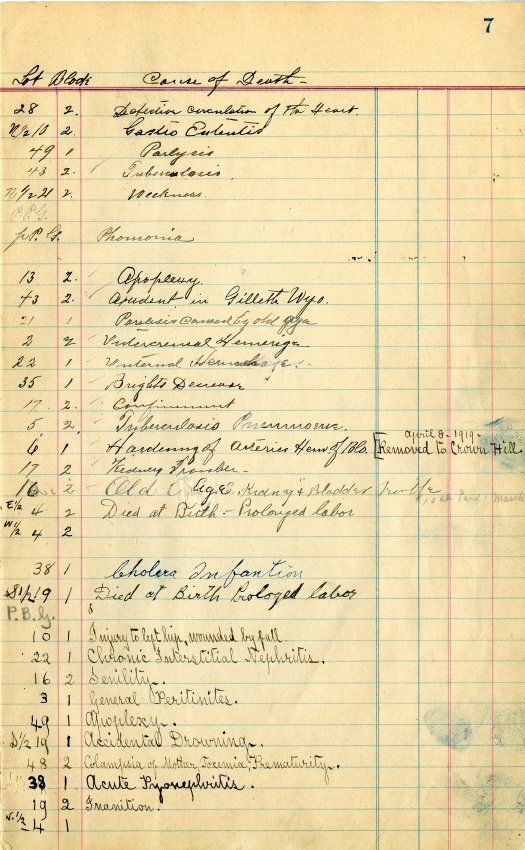 7
Lot Block Cause of Death
28 2. Defective circulation of the Heart.
N/2 10 2. Gastro Ententis
49 1 Parlysis
43 2. Tuberculosis.
N 1/2 21 2. Weekness.
P.P.G.
P.P. G. Phomonia
13 2. Apoplexy.
43 2. Accident in Gilleth Wyo.
21 1 Paralisis caused by old age
2 2 Intercrenial Hemeriga
22 1 Internal
35 1 Brights Decease
17 2. Confinement
5 2. Tuberculosio Pneumonie.
April 8 - 1919 -
6 1 Hardening of Arteries Hem of Bld. [Removed to Crown Hill
17 2 Kedney Trouble
16 2 Old Age. Kidney & Bladder trouble
E 1/2 4 2 Died at Birth - Prolonged labor
W 1/2 4 2
38 1 Cholera Infantion
S 1/2 19 1 Died at Birth Prologed labor
P. B. G.
10 1 Injury to left hip, wounded by fall
22 1 Chronic Interstitial Nephritis.
16 2 Senility.
3 1 General Peritinites.
49 1 Apoplexy.
S 1/2 19 1 Accidental Drowning.
48 2 Eclampsia of Mother, Toxemia, Prematurity.
38 1 Acute Pyonephritis.
19 2 Inanition.
N. 1/2 4 1